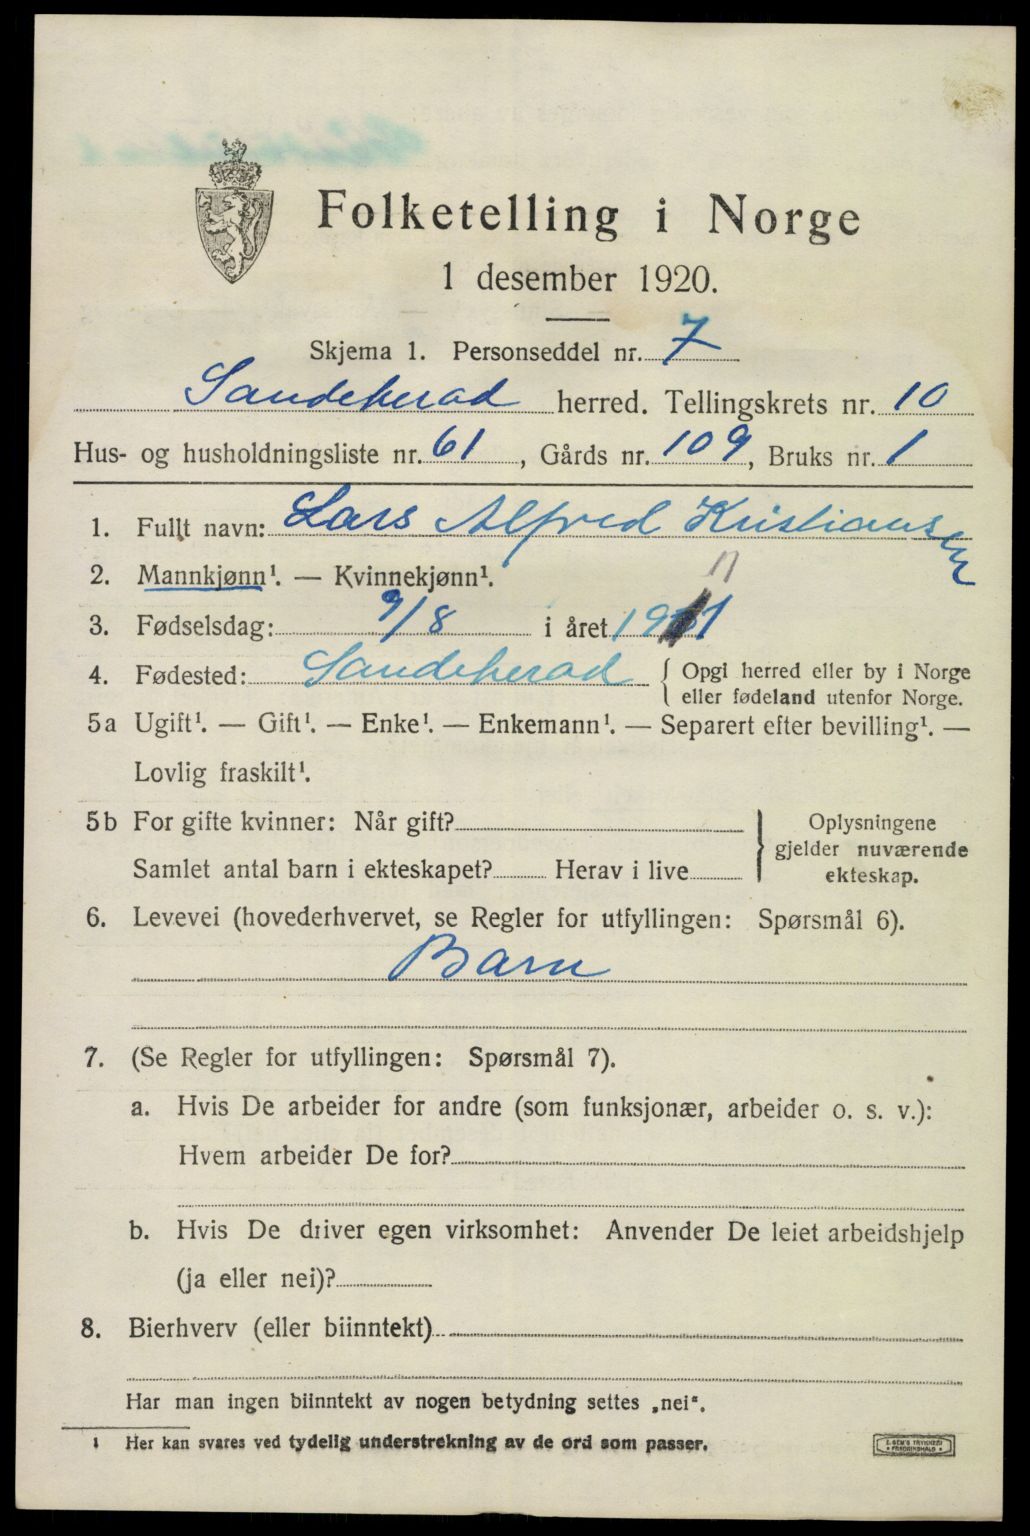 Folketelling i Norge
1 desember 1920.
Skjema 1. Personseddel nr. 7
Sandeherad herred. Tellingskrets nr. 10
Hus- og husholdningsliste nr. 61, Gårds nr. 109, Bruks nr. 1
1. Fullt navn: Lars Alfred Kristiansen
2. Mannkjønn¹. — Kvinnekjønn¹.
11
3. Fødselsdag: 9/8 i året 1911
4. Fødested: Sandeherad { Opgi herred eller by i Norge
eller fødeland utenfor Norge.
5a Ugift¹. — Gift¹. — Enke¹. — Enkemann¹. — Separert efter bevilling¹. —
Lovlig fraskilt¹.
5b For gifte kvinner: Når gift?
Samlet antal barn i ekteskapet? Herav i live
} Oplysningene
gjelder nuværende
ekteskap.
6. Levevei (hovederhvervet, se Regler for utfyllingen: Spørsmål 6).
Barn
7. (Se Regler for utfyllingen: Spørsmål 7).
a. Hvis De arbeider for andre (som funksjonær, arbeider o. s. v.):
Hvem arbeider De for?
b. Hvis De driver egen virksomhet: Anvender De leiet arbeidshjelp
(ja eller nei)?
8. Bierhverv (eller biinntekt)
Har man ingen biinntekt av nogen betydning settes „nei“.
¹ Her kan svares ved tydelig understrekning av de ord som passer.
E. SEM'S TRYKKERI
FREDRIKSHALD